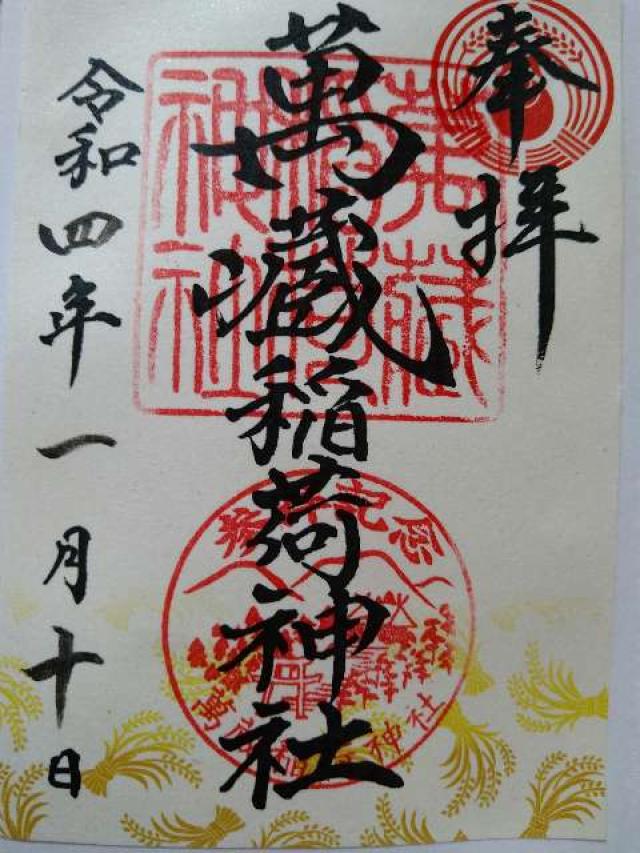 奉拝
萬蔵稲荷神社
令和四年一月十日
萬蔵稲荷神社
参拝記念
萬蔵稲荷神社